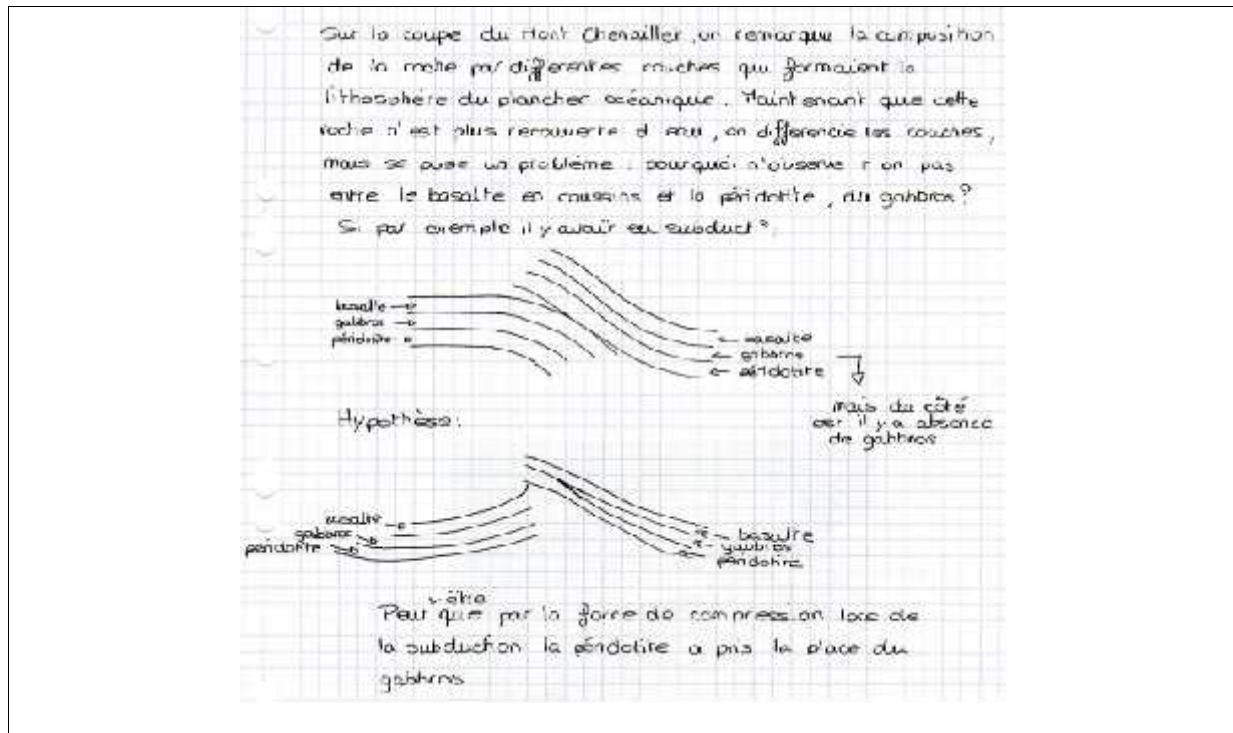 Sur la coupe du Mont Chenaillet, on remarque la composition
de la roche par differentes couches qui formaient la
lithosphère du plancher océanique. Maintenant que cette
roche n'est plus recouverte d'eau, on differencie les couches,
mais se pose un problème : pourquoi n'observe t'on pas
entre le basalte en coussins et la péridotite, du gabbros?
Si par exemple il y avait eu subduct°,
basalte
gabbros
péridotite
basalte
gabbros
péridotite
mais du côté
est il y a absence
de gabbros
Hypothèse:
basalte
gabbros
péridotite
basalte
gabbros
péridotite
être
Peut que par la force de compression lors de
la subduction la péridotite a pris la place du
gabbros